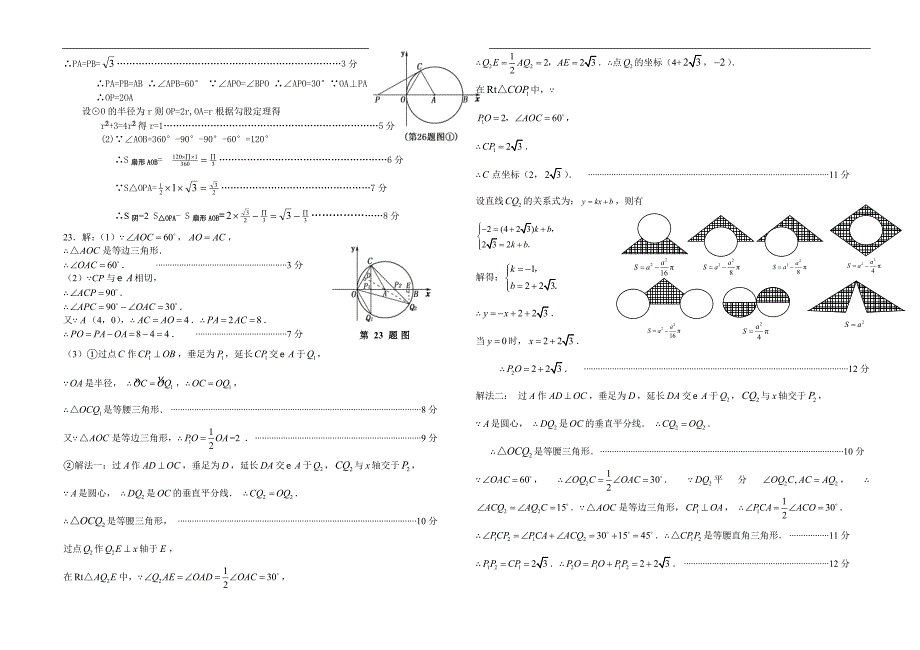 ∴PA=PB=√3 ……………………………………………………3分
∴PA=PB=AB ∴∠APB=60° ∵∠APO=∠BPO ∴∠APO=30°∵OA⊥PA
∴OP=2OA
设⊙O的半径为r则OP=2r,OA=r根据勾股定理得
r²+3=4r²得r=1……………………………………………………5分
(2)∵∠AOB=360°-90°-90°-60°=120°
∴S扇形AOB= 120×Π×1/360 = Π/3 ………………………………………6分
∵S△OPA=1/2×1×√3=√3/2 ……………………………………7分
∴S阴=2 S△OPA- S扇形AOB=2×√3/2-Π/3=√3-Π/3 …………………8分
23.解:(1)∵∠AOC=60°,AO=AC,
∴△AOC是等边三角形.
∴∠OAC=60°. ………………………………3分
(2)∵CP与e A相切,
∴∠ACP=90°.
∴∠APC=90°-∠OAC=30°.
又∵A(4,0),∴AC=AO=4.∴PA=2AC=8.
∴PO=PA-OA=8-4=4. ……………………………7分
(3)①过点C作CP₁⊥OB,垂足为P₁,延长CP₁交e A于Q₁,
∵OA是半径, ∴OC=OQ₁,∴OC=OQ₁,
∴△OCQ₁是等腰三角形.……………………………………………………8分
又∵△AOC是等边三角形,∴P₁O=1/2OA=2 .……………………………………9分
②解法一:过A作AD⊥OC,垂足为D,延长DA交e A于Q₂,CQ₂与x轴交于P₂,
∵A是圆心, ∴DQ₂是OC的垂直平分线. ∴CQ₂=OQ₂.
∴△OCQ₂是等腰三角形, ……………………………………………………10分
过点Q₂作Q₂E⊥x轴于E,
在Rt△AQ₂E中,∵∠Q₂AE=∠OAD=1/2∠OAC=30°,
y
C
P O A B x
(第26题图①)
y
C
D
P₁ P₂ E
O A B x
Q₂
Q₁
第 23 题 图
∴Q₂E=1/2AQ₂=2,AE=2√3.∴点Q₂的坐标(4+2√3,-2).
在Rt△COP₁中,∵
P₁O=2,∠AOC=60°,
∴CP₁=2√3.
∴C点坐标(2,2√3). ……………………………………………………11分
设直线CQ₂的关系式为:y=kx+b,则有
{-2=(4+2√3)k+b,
2√3=2k+b.
解得:{k=-1,
b=2+2√3.
∴y=-x+2+2√3.
当y=0时,x=2+2√3.
∴P₂O=2+2√3. ……………………………………………………12分
S=a²-a²/16π
S=a²-a²/8π
S=a²-a²/8π
S=a²-a²/4π
S=a²-a²/16π
S=a²/4π
S=a²
解法二: 过A作AD⊥OC,垂足为D,延长DA交e A于Q₂,CQ₂与x轴交于P₂,
∵A是圆心, ∴DQ₂是OC的垂直平分线. ∴CQ₂=OQ₂.
∴△OCQ₂是等腰三角形.……………………………………………………10分
∵∠OAC=60°, ∴∠OQ₂C=1/2∠OAC=30°. ∵DQ₂平分∠OQ₂C,AC=AQ₂, ∴
∠ACQ₂=∠AQ₂C=15°.∵△AOC是等边三角形,CP₁⊥OA, ∴∠P₁CA=1/2∠ACO=30°.
∴∠P₁CP₂=∠P₁CA+∠ACQ₂=30°+15°=45°.∴△CP₁P₂是等腰直角三角形. …………11分
∴P₁P₂=CP₁=2√3.∴P₂O=P₁O+P₁P₂=2+2√3. ……………………………12分